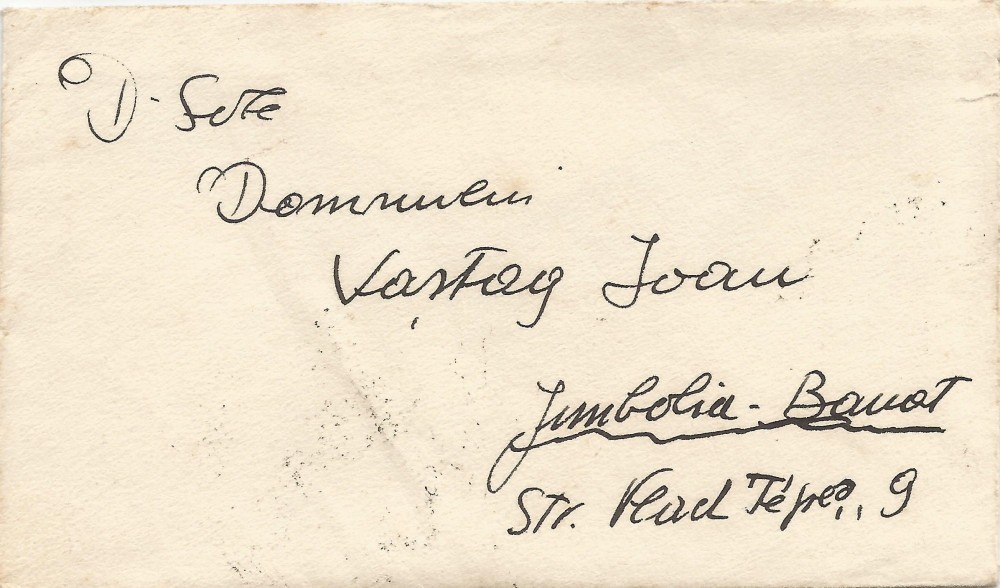 D-Sale
Domnului
Vaştag Ioan
Jimbolia - Banat
Str. Vlad Ţepeş, 9